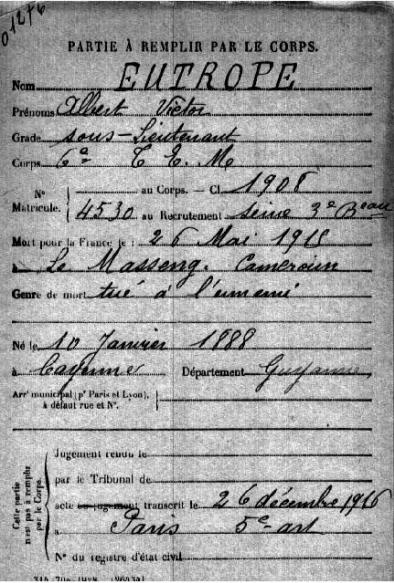 01276
PARTIE À REMPLIR PAR LE CORPS.
Nom EUTROPE
Prénoms Albert Victor
Grade sous-Lieutenant
Corps
No au Corps. — Cl. 1908
Matricule. 4530 au Recrutement Seine 3e Beau
Mort pour la France le : 26 Mai 1915
à Le Masseng. Cameroun
Genre de mort tué à l'ennemi
Né le 10 Janvier 1888
à Cayenne Département Guyane
Arrt municipal (pr Paris et Lyon),
à défaut rue et N°.
Cette partie
n'est pas à remplir
par le Corps.
Jugement rendu le
par le Tribunal de
acte ou jugement transcrit le 26 décembre 1916
à Paris 5e art
N° du registre d'état civil